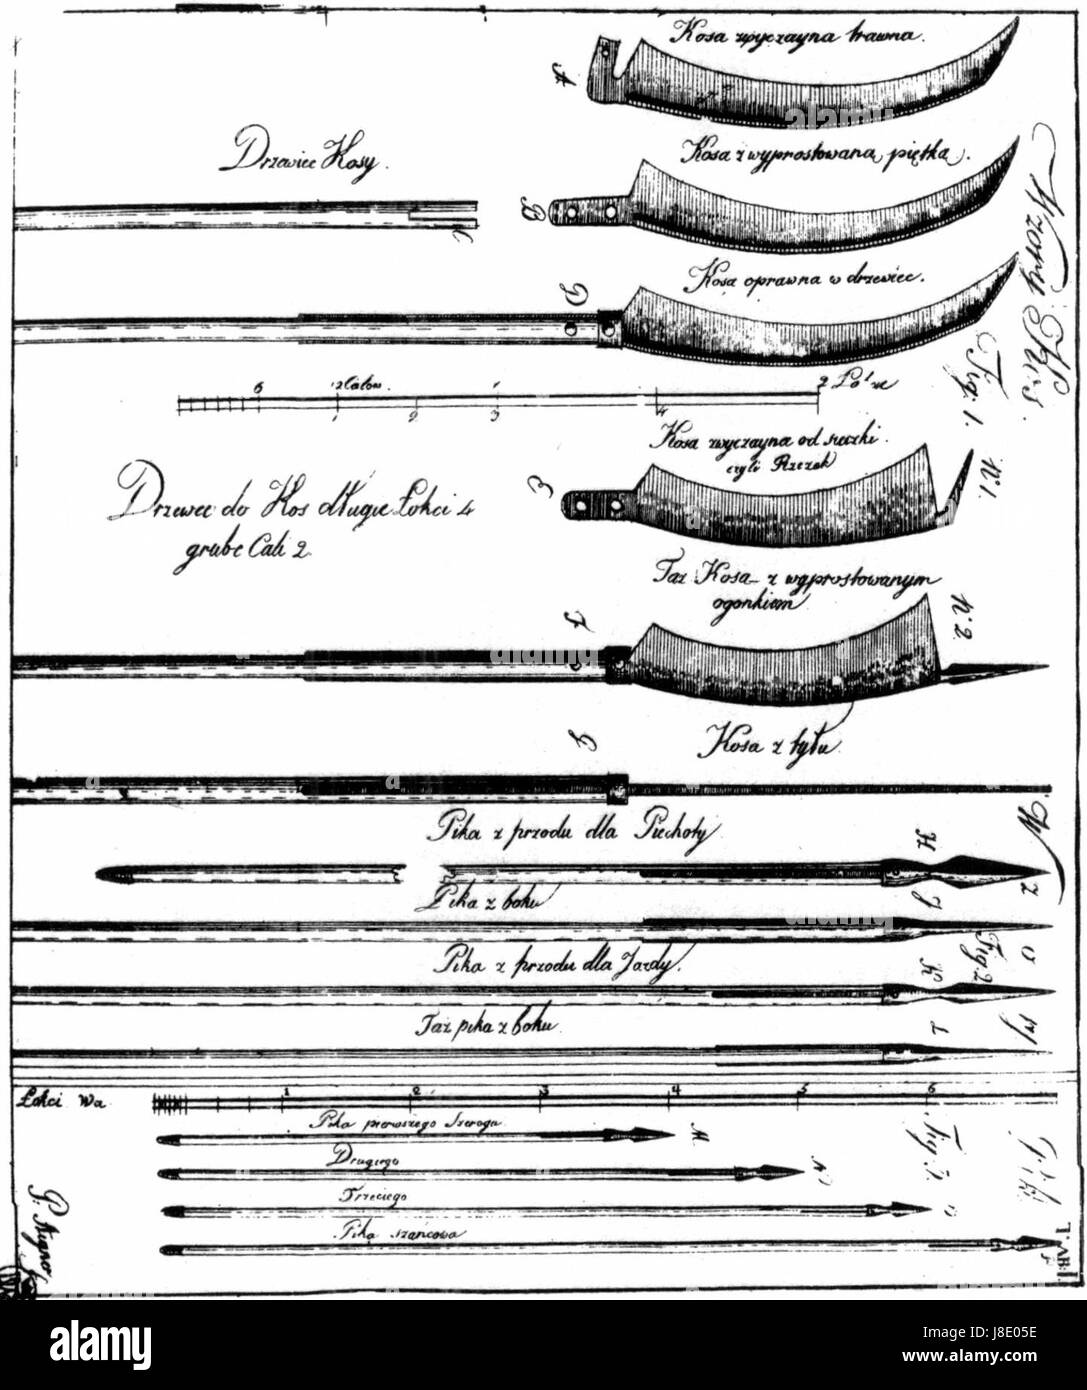 Kosa zwyczayna trawna.
A
Drzewiec Kosy.
Kosa z wyprostowaną piętką.
B
C
Kosa oprawna w drzewiec.
D
Wzory Kos i Pik
Fig. 1.
6 12 Calow. 1 2 Łokcie
1 2 3 4
Kosa zwyczayna od sieczki
czyli Rzezak
N 1.
Drzewce do Kos długie Łokci 4
grube Cali 2
Taż Kosa z wyprostowanym
ogonkiem
N 2.
F
Kosa z tyłu.
G
Pika z przodu dla Piechoty
H
Pika z boku
Pika z przodu dla Jazdy.
K
Fig 2
Taż pika z boku
L
Łokci Wa 1 2 3 4 5 6
Pika pierwszego Szeregu
M
Drugiego
N
Trzeciego
O
Pika szańcowa
P
Fig 3.
TAB: I.
alamy
Image ID: J8E05E
www.alamy.com